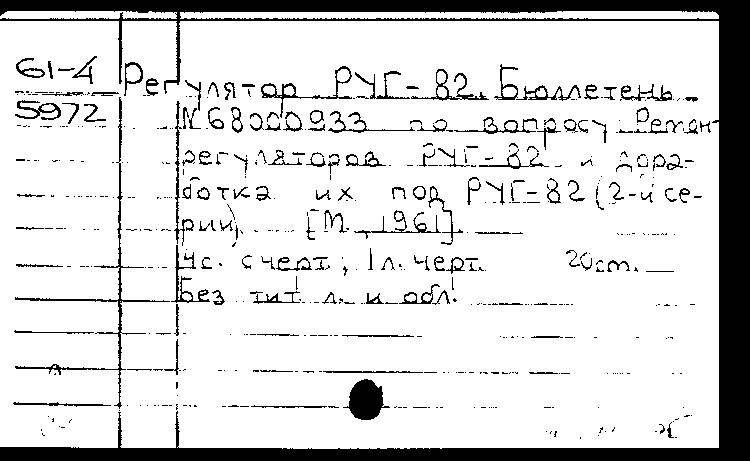 61-4
5972
Регулятор РУГ-82. Бюллетень
№68000933 по вопросу Ремонт
регуляторов РУГ-82 и дора-
ботка их под РУГ-82 (2-й се-
рии). [М., 1961].
4с. с черт.; 1л. черт. 20cm.
Без тит. л. и обл.